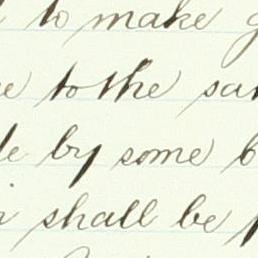 to make
to the
by some
shall be